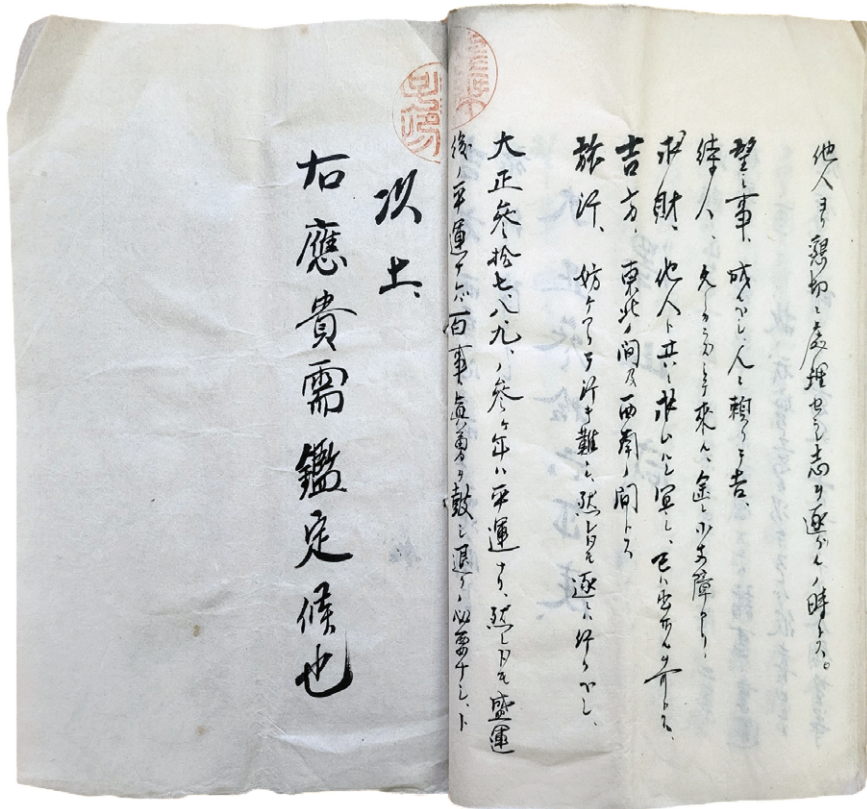 他人ヨリ懇切ニ處理セラレ志ヲ遂グルノ時トス。
望ミ事、成ルベシ、人ニ頼リテ吉、
待人、久シカラズシテ來ル、途ニ小支障アリ、
求財、他人ト共ニ求ムルニ宜シ、
吉方、東北ノ間及西南ノ間トス
旅行、妨ゲアリテ行キ難シ、然レトモ遂ニ行クベシ、
大正參拾七、八、九、ノ參ヶ年ハ平運ナリ、然レトモ盛運
後ノ平運ナレバ百事眞勇ヲ鼓シ退クノ必要ナシ、ト
以上、
右應貴需鑑定候也